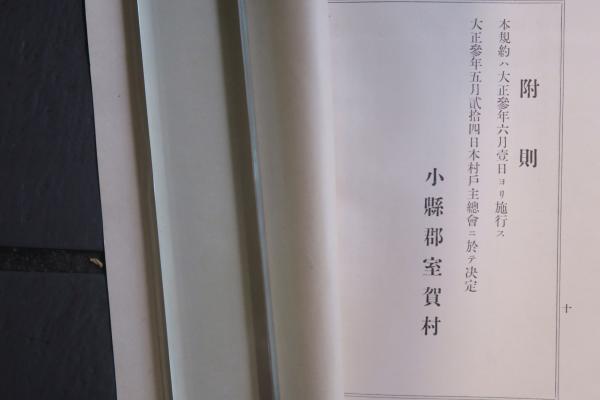 附則
本規約ハ大正參年六月壹日ヨリ施行ス
大正參年五月貳拾四日本村戶主總會ニ於テ決定
小縣郡室賀村
十